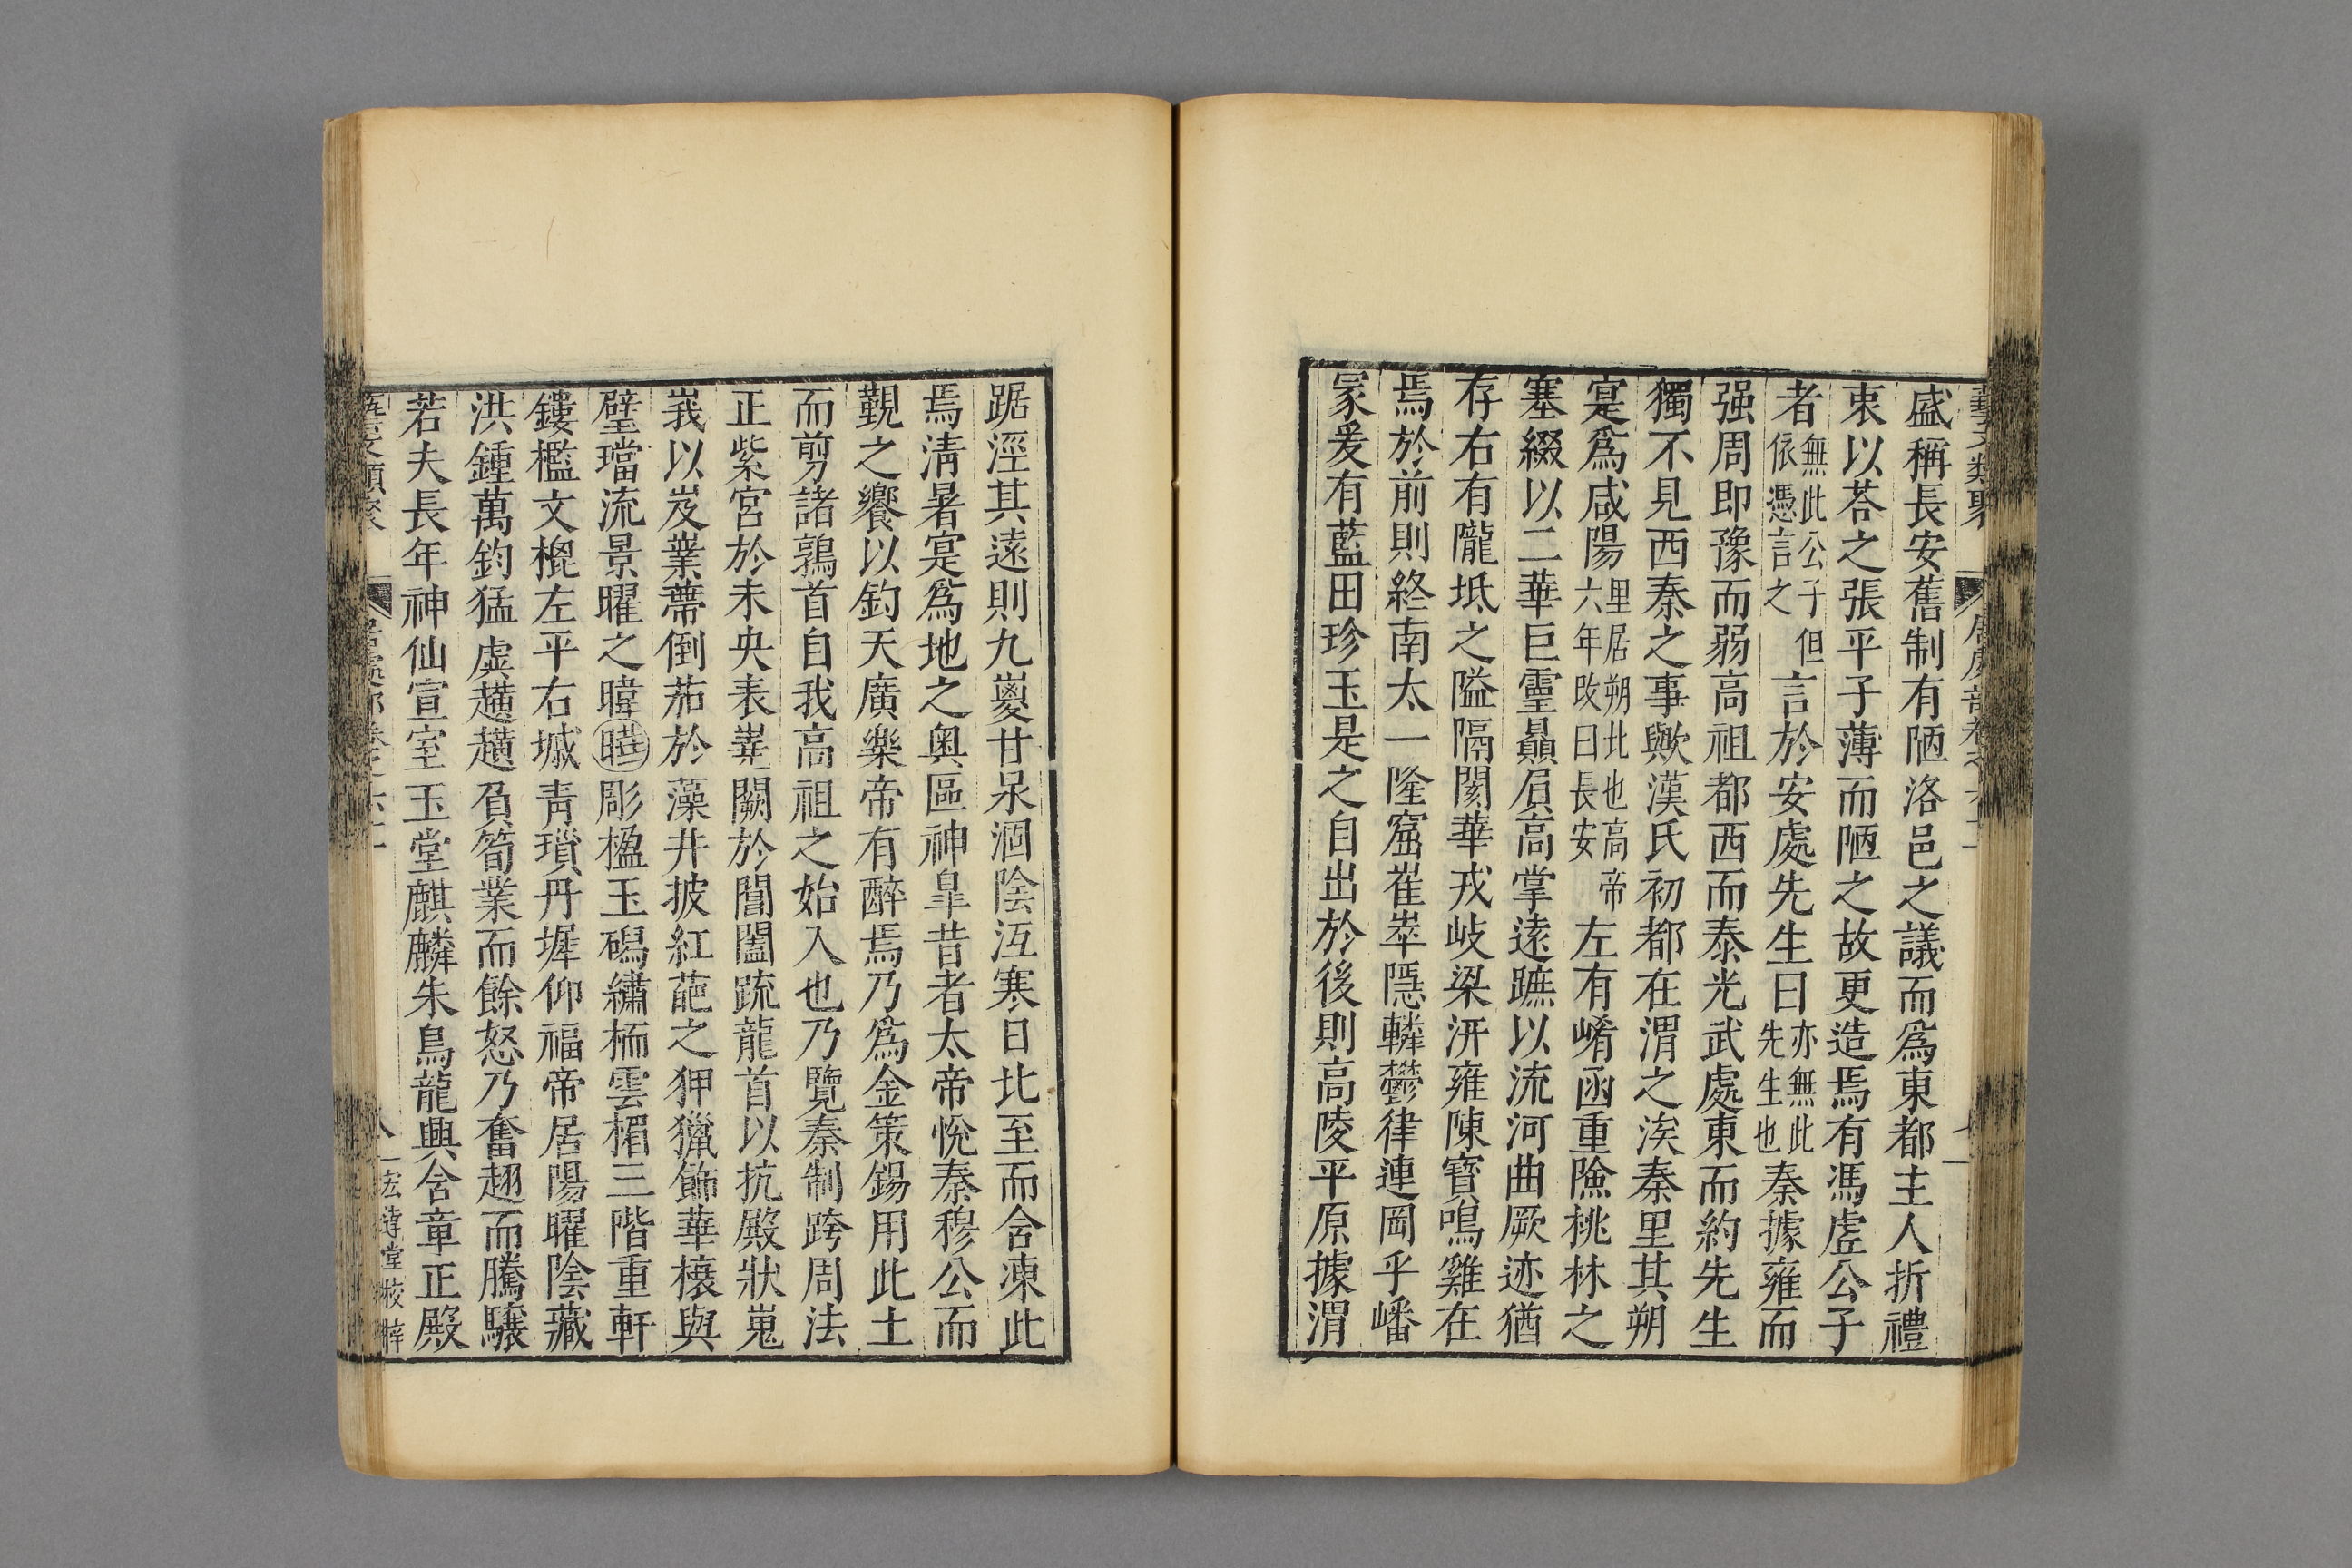 藝文類聚 居處部卷之六十一
盛稱長安舊制有陋洛邑之議而爲東都主人折禮
衷以荅之張平子薄而陋之故更造焉有馮虛公子
者無此公子但依憑言之言於安處先生曰亦無此先生也秦據雍而
强周即豫而弱高祖都西而泰光武處東而約先生
獨不見西秦之事歟漢氏初都在渭之涘秦里其朔
寔爲咸陽里居朔北也高帝六年改曰長安左有崤函重險桃林之
塞綴以二華巨靈贔屓高掌遠蹠以流河曲厥迹猶
存右有隴坻之隘隔閡華戎岐梁汧雍陳寶鳴雞在
焉於前則終南太一隆窟崔崒隱轔鬱律連岡乎嶓
冢爰有藍田珍玉是之自出於後則高陵平原據渭
踞涇其遠則九嵏甘泉涸陰沍寒日北至而含凍此
焉淸暑寔爲地之奥區神皐昔者太帝悅秦穆公而
覲之饗以鈞天廣樂帝有醉焉乃爲金策錫用此土
而剪諸鶉首自我高祖之始入也乃覽秦制跨周法
正紫宮於未央表嶤闕於閶闔疏龍首以抗殿狀嵬
峩以岌嶪蔕倒茄於藻井披紅葩之狎獵飾華榱與
璧璫流景曜之暐曄彫楹玉磶繡栭雲楣三階重軒
鏤檻文㮰左平右墄青瑣丹墀仰福帝居陽曜陰藏
洪鍾萬鈞猛虡趪趪負筍業而餘怒乃奮翅而騰驤
若夫長年神仙宣室玉堂麒麟朱鳥龍興含章正殿
居處部卷之六十一 八 宏達堂校梓